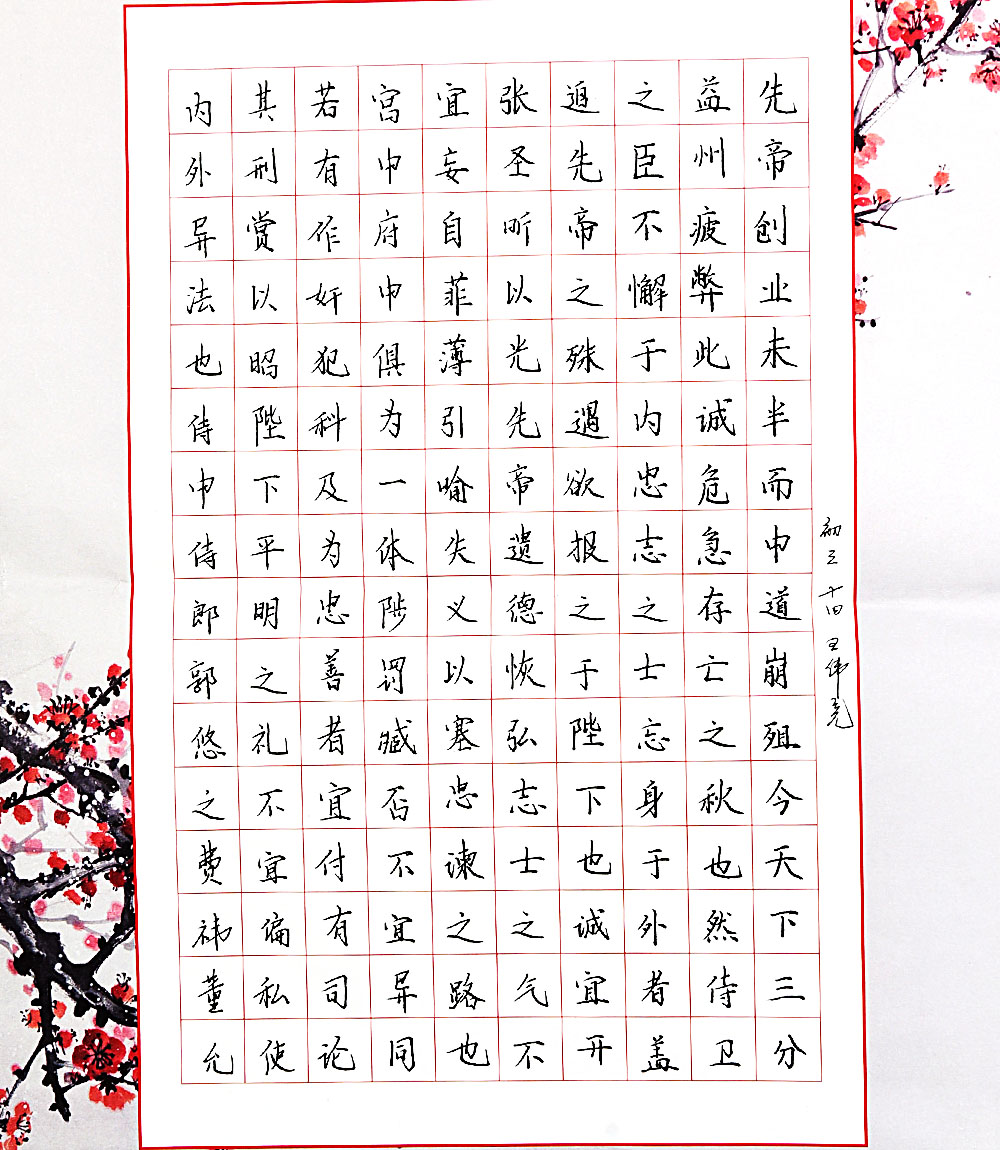 初三十四王伟亮
先帝创业未半而中道崩殂今天下三分
益州疲弊此诚危急存亡之秋也然侍卫
之臣不懈于内忠志之士忘身于外者盖
追先帝之殊遇欲报之于陛下也诚宜开
张圣听以光先帝遗德恢弘志士之气不
宜妄自菲薄引喻失义以塞忠谏之路也
宫中府中俱为一体陟罚臧否不宜异同
若有作奸犯科及为忠善者宜付有司论
其刑赏以昭陛下平明之礼不宜偏私使
内外异法也侍中侍郎郭悠之费祎董允